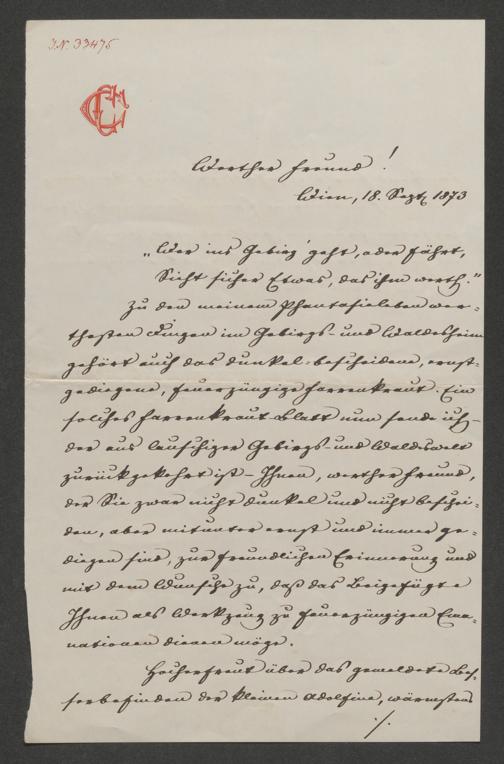 I.N. 33475
CE
Werther Freund!
Wien, 18. Sept. 1873
„Wer ins Gebirg' geht, oder fährt,
Sieht sicher Etwas, das ihm werth."
Zu den meinem Phantasieleben wer-
thesten Dingen im Gebirgs- und Waldesheim
gehört auch das dunkel-bescheidene, ernst-
gediegene, feuerzüngige Farrenkraut. Ein
solches Farrenkraut-Blatt nun sende ich –
der aus lauschiger Gebirgs- und Waldeswelt
zurückgekehrt ist – Ihnen, werther Freund,
der Sie zwar nicht dunkel und nicht beschei-
den, aber mitunter ernst und immer ge-
diegen sind, zur freundlichen Erinnerung und
mit dem Wunsche zu, daß das Beigefügte
Ihnen als Werkzeug zu feuerzüngigen Ema-
nationen dienen möge.
Hocherfreut über das gemeldete Bes-
serbefinden der kleinen Adolfine, wärmstens
./.